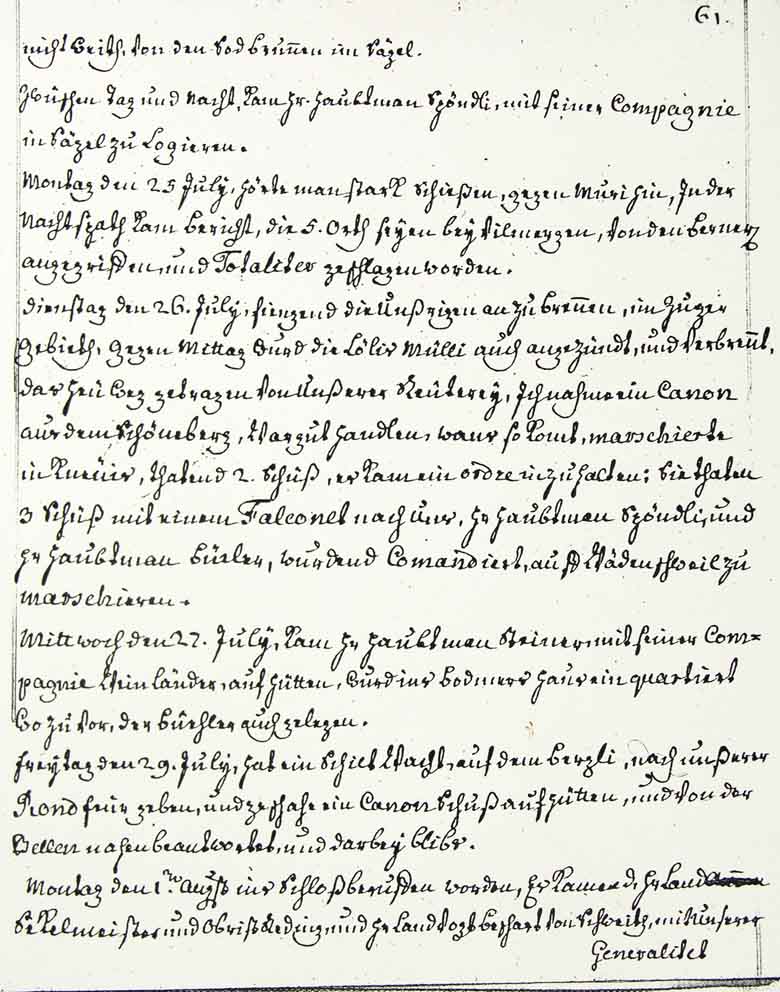 61.
nicht weith, von den Sodbrunen im Säzel.
Zwüschen Tag und Nacht, kam Hr. Haubtman Spöndli, mit seiner Compagnie
in Säzel zu Logieren.
Montag den 25 July, hörte man stark schießen, gegen Muri hin, In der
Nacht spath kam bericht, die 5. Orth seyen bey Vilmergen, von den Berner
angegriffen, und Totaliter geschlagen worden.
dienstag den 26. July, fiengend die Unßrigen an zu brenen, im Zuger
gebieth, gegen Mittag wurd die Mülli auch angezündt, und verbrent,
das heü weg getragen von Unßerer Reuterey, Ich nahme ein Canon
aus dem Schöneberg, marschierte
in thatend 2. Schuß, es kam ein ordre inzuhalten; Sie thaten
3 Schuß mit einem Falconet nach Uns, Hr Haubtman Spöndli, und
Hr Haubtman Bürler, wurdend Comandiert, auff Wädenschweil zu
marschieren.
Mittwoch den 27. July, kam Hr Haubtman Steiner, mit seiner Com=
pagnie Weinländer, auf Hütten, wurd ins Bodmers Haus ein quartiert
wo zuvor, der Büehler auch gelegen.
freytag den 29. July, hat ein Schiltwacht, auf dem Bergli, nach unßerer
Rond feür geben, und geschahe ein Canon Schuß auf Hütten, und von der
Bellen nahen beantwortet, und darbey blibe.
Montag den 1.ten Augst ins Schloß beruffen worden, Es kamend, Hr Land
Sekelmeister und Obrist Reding, und Hr Landvogt Beschart von Schweitz, mit Unserer
Generalitet